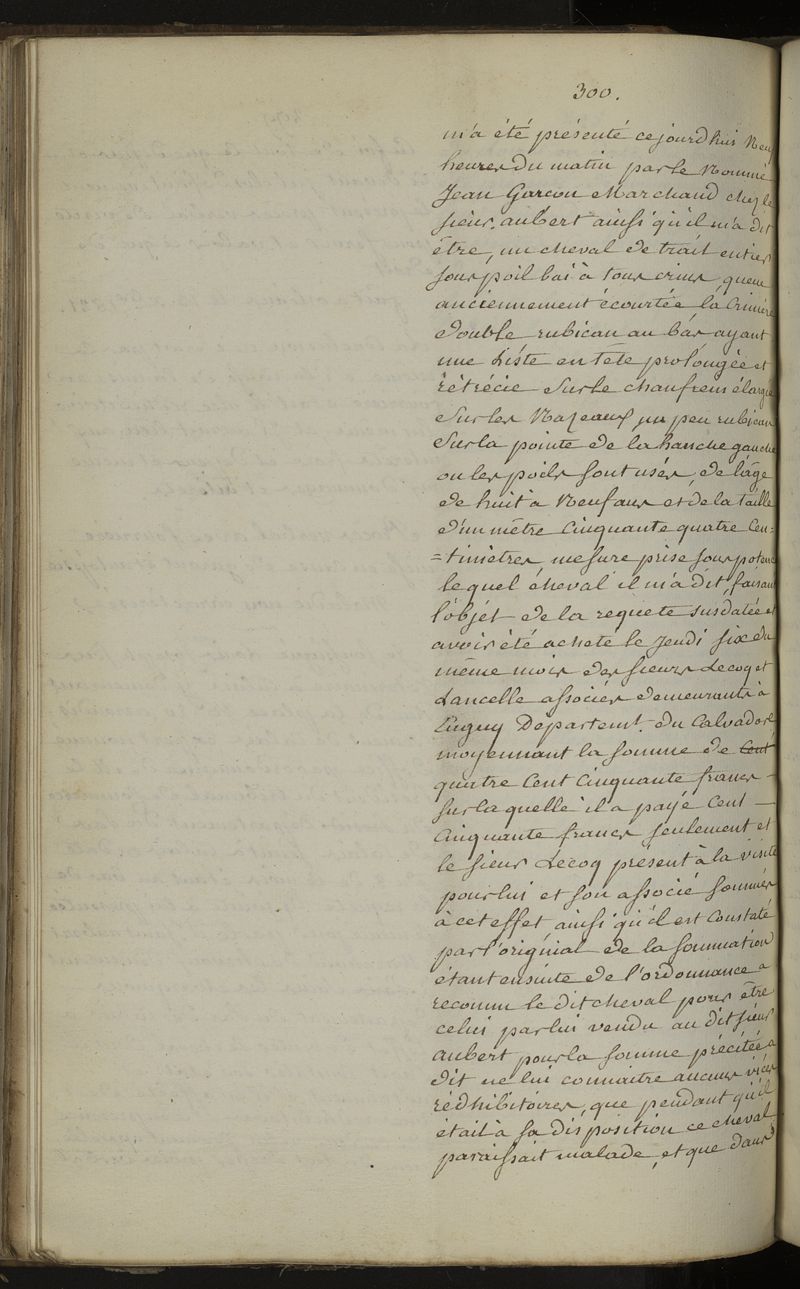 300.
m'a été présenté cejourd'hui Neuf
heures Du matin par le Nommé
Jean Garcon Marchand chez le
sieur aubert ainsi qu'il m'a dit
être, un cheval de trait entier
sous poil bai à tous crins, queue
anciennement écourtée la Crinière
double rubican au bas ayant
une Liste en Tete prolongée et
rétrécie sur le chanfrein élargie
sur les Nazeaux un peu rubican
sur la pointe de la hanche gauche
ou les poils sont usés, de l'âge
de huit à Neuf ans et de la taille
d'un mètre Cinquante quatre Cen=
=timètres mesure prise sous potence
lequel cheval il m'a dit, faisant
l'objet de la requete susdatée et
avoir été acheté le Jeudi six du
même mois des sieurs Lecoq et
Lancelle associés demeurants à
Département. du Calvados
moyennant la somme de Cent
quatre Cent Cinquante francs -
sur laquelle il a payé Cent —
Cinquante francs seulement et
le sieur Lecoq present à la visite
pour lui et son associé sommés
à cet effet, ainsi qu'il est Constaté
par l'original de la sommation
étant ensuite de l'ordonnance a
reconnu le dit cheval pour être
celui par lui vendu au dit sieur
aubert pour la somme précitée a
dit ne lui connaitre aucuns vices
rédhibitoires, que pendant qu'il
était à sa disposition ce cheval
paraissait malade, et que dans